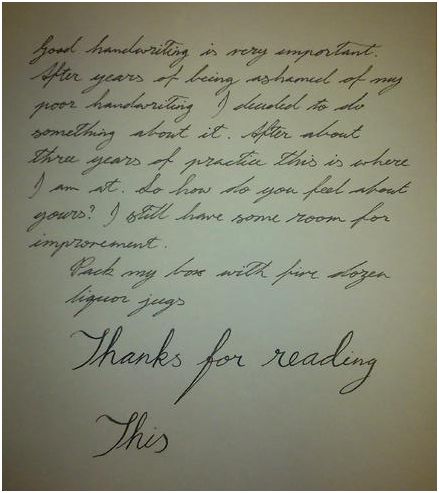 Good handwriting is very important.
After years of being ashamed of my
poor handwriting I decided to do
something about it. After about
three years of practice this is where
I am at. So how do you feel about
yours? I still have some room for
improvement.
Pack my box with five dozen
liquor jugs
Thanks for reading
This